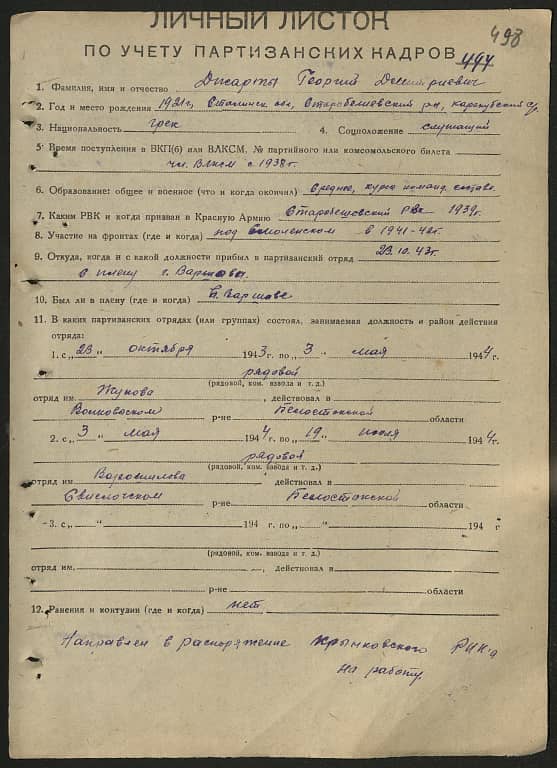 ЛИЧНЫЙ ЛИСТОК
498
ПО УЧЕТУ ПАРТИЗАНСКИХ КАДРОВ 497
1. Фамилия, имя и отчество Джарты Георгий Дмитриевич
2. Год и место рождения 1921г, Сталинск. обл, Старобешевский р-н,
3. Национальность грек 4. Соцположение служащий
5. Время поступления в ВКП(б) или ВЛКСМ, № партийного или комсомольского билета
чл. Влксм с 1938г.
6. Образование: общее и военное (что и когда окончил) среднее, курсы команд. состава
7. Каким РВК и когда призван в Красную Армию Старобешевский РВК 1939г.
8. Участие на фронтах (где и когда) под Смоленском в 1941-42г.
9. Откуда, когда и с какой должности прибыл в партизанский отряд 23.10.43г.
с плену г. Варшавы.
10. Был ли в плену (где и когда) в Варшаве
11. В каких партизанских отрядах (или группах) состоял, занимаемая должность и район действия
отряда:
1. с „23 “ октября 1943г. по „3 “ мая 1944г.
рядовой
(рядовой, ком. взвода и т. д.)
отряд им. Жукова, действовал в
Волковоском р-не Белостокской области
2. с „3 “ мая 1944г. по „19 “ июля 1944г.
рядовой
(рядовой, ком. взвода и т. д.)
отряд им Ворошилова действовал в
Свислочском р-не Белостокской области
3. с „ “ 194 г. по „ “ 194 г
(рядовой, ком. взвода и т. д.)
отряд им. , действовал в
р-не области
12. Ранения и контузии (где и когда) нет
Направлен в распоряжение Крынковского РИК-а
на работу